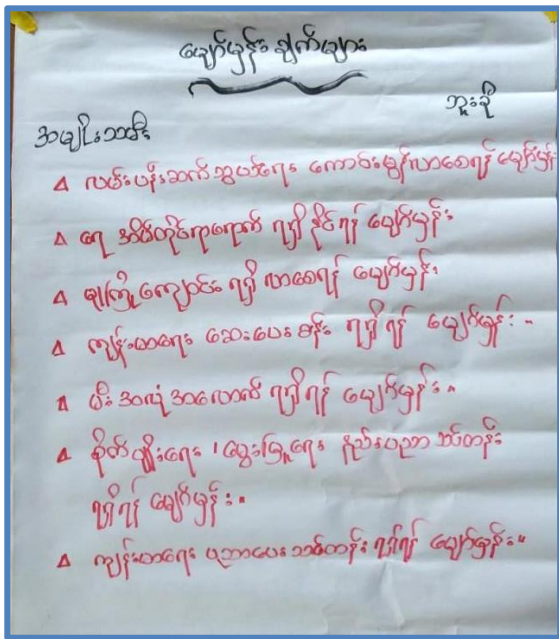 မျှော်မှန်းချက်များ
ဘူးခို
အမျိုးသမီး
∆ လမ်းပန်းဆက်သွယ်ရေး ကောင်းမွန်လာစေရန် မျှော်မှန်း
∆ ရေ အိမ်တိုင်ရာရောက် ရရှိ နိုင်ရန် မျှော်မှန်း
∆ မူကြိုကျောင်း ရရှိ လာစေရန် မျှော်မှန်း
∆ ကျန်းမာရေး ဆေးပေးခန်း ရရှိရန် မျှော်မှန်း။
∆ မီး အလုံအလောက် ရရှိရန် မျှော်မှန်း။
∆ စိုက်ပျိုးရေး ၊ မွေးမြူရေး နည်းပညာ သင်တန်း
ရရှိရန် မျှော်မှန်း။
∆ ကျန်းမာရေး ပညာပေးသင်တန်း ရရှိရန် မျှော်မှန်း။